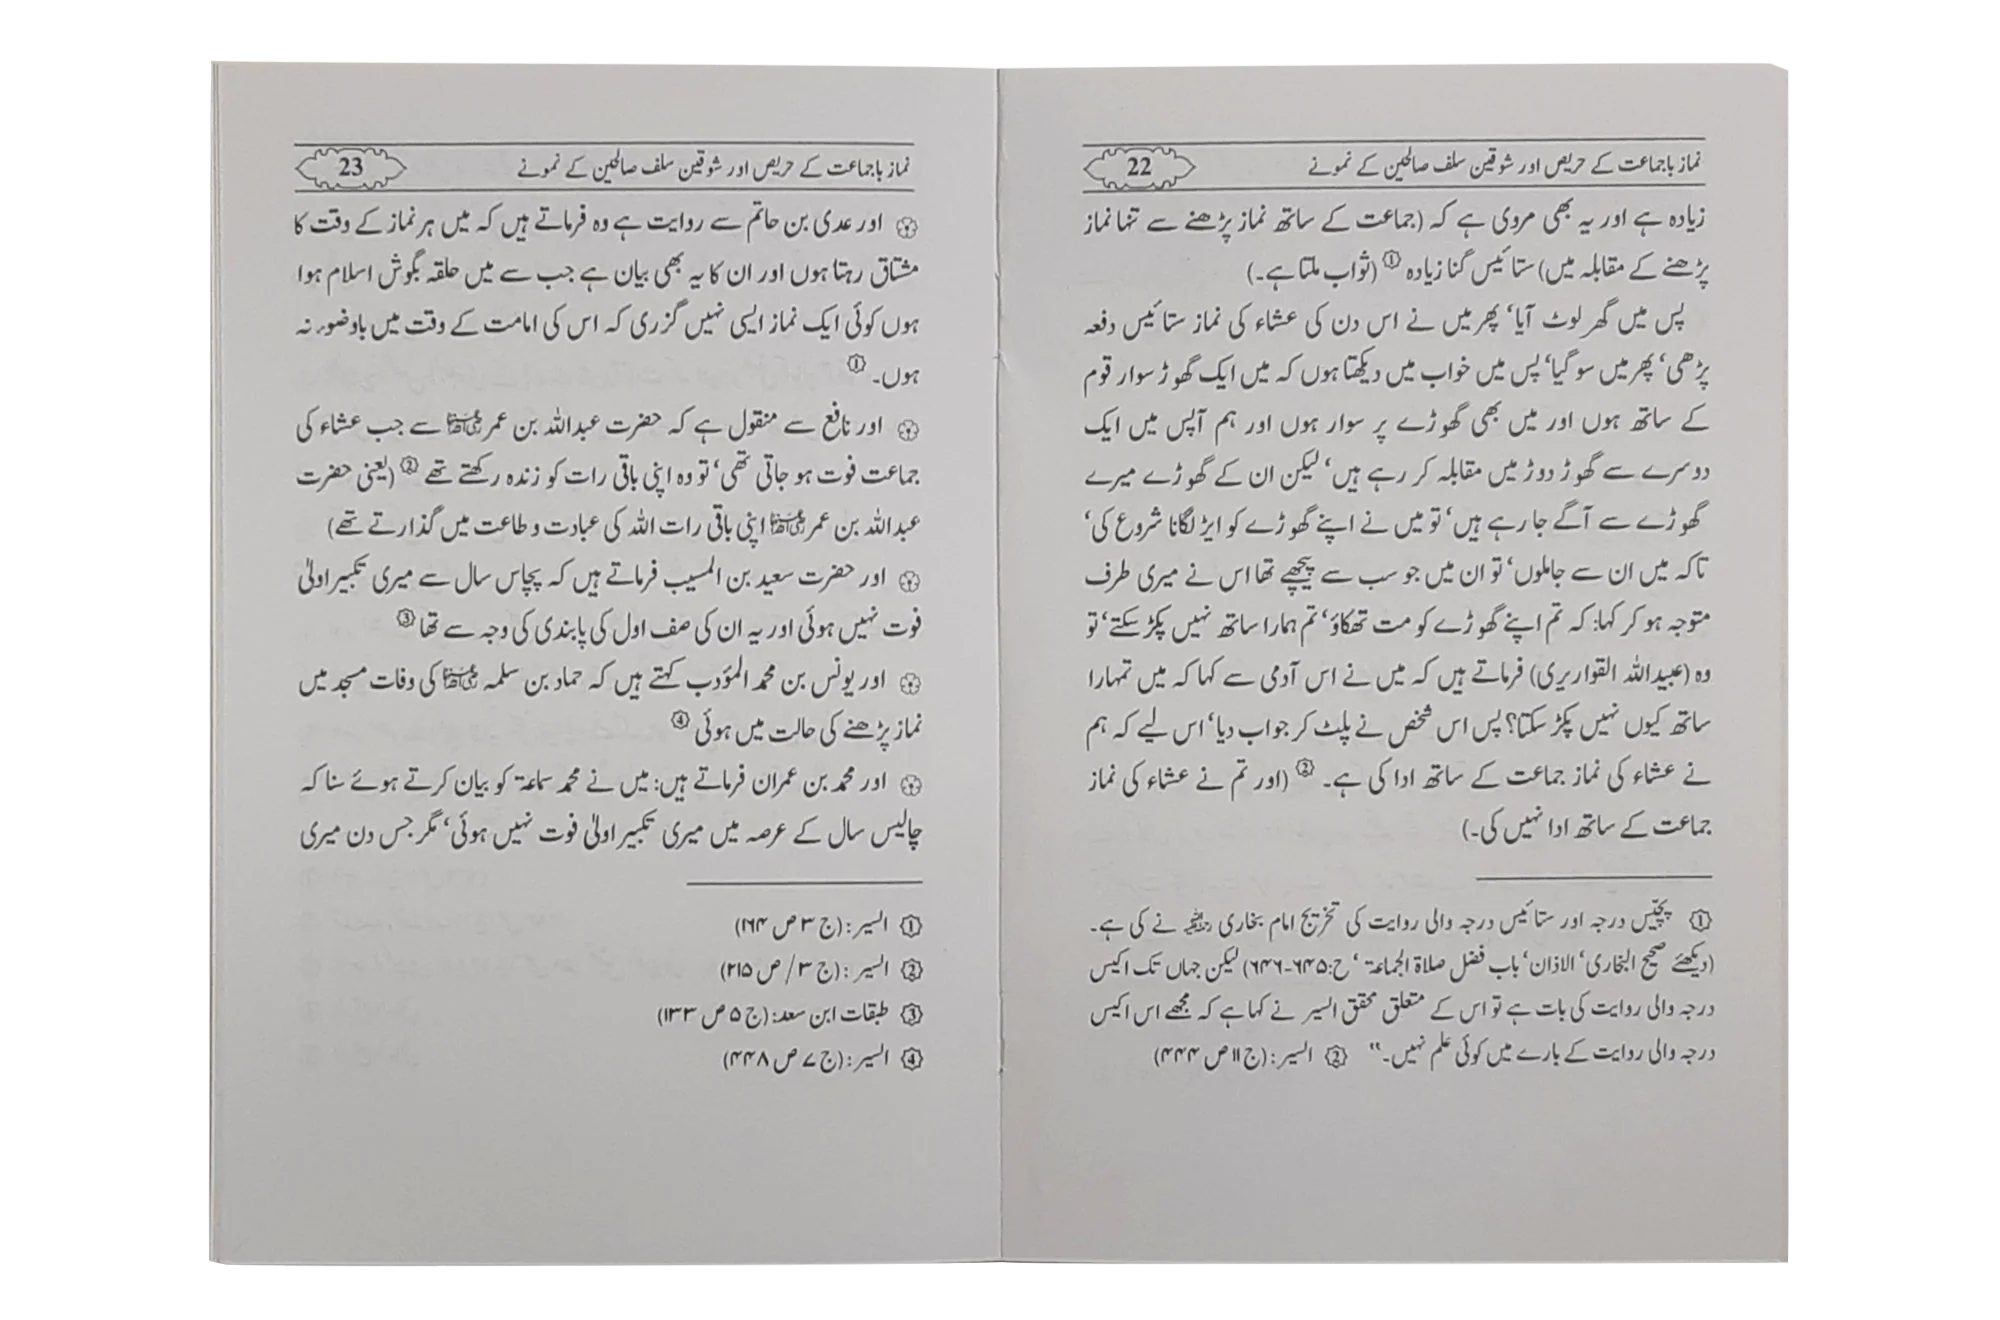 نماز باجماعت کے حریص اور شوقین سلف صالحین کے نمونے 22
زیادہ ہے اور یہ بھی مروی ہے کہ (جماعت کے ساتھ نماز پڑھنے سے تنہا نماز
پڑھنے کے مقابلہ میں) ستائیس گنا زیادہ ① (ثواب ملتا ہے۔)
پس میں گھر لوٹ آیا‘ پھر میں نے اس دن کی عشاء کی نماز ستائیس دفعہ
پڑھی‘ پھر میں سو گیا‘ پس میں خواب میں دیکھتا ہوں کہ میں ایک گھوڑ سوار قوم
کے ساتھ ہوں اور میں بھی گھوڑے پر سوار ہوں اور ہم آپس میں ایک
دوسرے سے گھوڑ دوڑ میں مقابلہ کر رہے ہیں‘ لیکن ان کے گھوڑے میرے
گھوڑے سے آگے جا رہے ہیں‘ تو میں نے اپنے گھوڑے کو ایڑ لگانا شروع کی‘
تاکہ میں ان سے جاملوں‘ تو ان میں جو سب سے پیچھے تھا اس نے میری طرف
متوجہ ہو کر کہا: کہ تم اپنے گھوڑے کو مت تھکاؤ‘ تم ہمارا ساتھ نہیں پکڑ سکتے‘ تو
وہ (عبیداللہ القواریری) فرماتے ہیں کہ میں نے اس آدمی سے کہا کہ میں تمہارا
ساتھ کیوں نہیں پکڑ سکتا؟ پس اس شخص نے پلٹ کر جواب دیا‘ اس لیے کہ ہم
نے عشاء کی نماز جماعت کے ساتھ ادا کی ہے۔ ② (اور تم نے عشاء کی نماز
جماعت کے ساتھ ادا نہیں کی۔)
① پچیّس درجہ اور ستائیس درجہ والی روایت کی تخریج امام بخاری رحمہ اللہ نے کی ہے۔
(دیکھئے صحیح البخاری‘ الاذان‘ باب فضل صلاۃ الجماعۃ ‘ح:۶۴۵-۶۴۶) لیکن جہاں تک اکیس
درجہ والی روایت کی بات ہے تو اس کے متعلق محقق السیر نے کہا ہے کہ مجھے اس اکیس
درجہ والی روایت کے بارے میں کوئی علم نہیں۔“ ② السیر: (ج ۱۱ ص ۴۴۴)
نماز باجماعت کے حریص اور شوقین سلف صالحین کے نمونے 23
اور عدی بن حاتم سے روایت ہے وہ فرماتے ہیں کہ میں ہر نماز کے وقت کا
مشتاق رہتا ہوں اور ان کا یہ بھی بیان ہے جب سے میں حلقہ بگوش اسلام ہوا
ہوں کوئی ایک نماز ایسی نہیں گزری کہ اس کی امامت کے وقت میں باوضوء نہ
ہوں۔ ①
اور نافع سے منقول ہے کہ حضرت عبداللہ بن عمر رضی اللہ عنہما سے جب عشاء کی
جماعت فوت ہو جاتی تھی‘ تو وہ اپنی باقی رات کو زندہ رکھتے تھے ② (یعنی حضرت
عبداللہ بن عمر رضی اللہ عنہما اپنی باقی رات اللہ کی عبادت و طاعت میں گذارتے تھے)
اور حضرت سعید بن المسیب فرماتے ہیں کہ پچاس سال سے میری تکبیر اولیٰ
فوت نہیں ہوئی اور یہ ان کی صف اول کی پابندی کی وجہ سے تھا ③
اور یونس بن محمد المؤدب کہتے ہیں کہ حماد بن سلمہ رضی اللہ عنہما کی وفات مسجد میں
نماز پڑھنے کی حالت میں ہوئی ④
اور محمد بن عمران فرماتے ہیں: میں نے محمد سماعۃ کو بیان کرتے ہوئے سنا کہ
چالیس سال کے عرصہ میں میری تکبیر اولیٰ فوت نہیں ہوئی‘ مگر جس دن میری
① السیر: (ج ۳ ص ۱۶۴)
② السیر: (ج ۳/ ص ۲۱۵)
③ طبقات ابن سعد: (ج ۵ ص ۱۳۳)
④ السیر: (ج ۷ ص ۴۴۸)